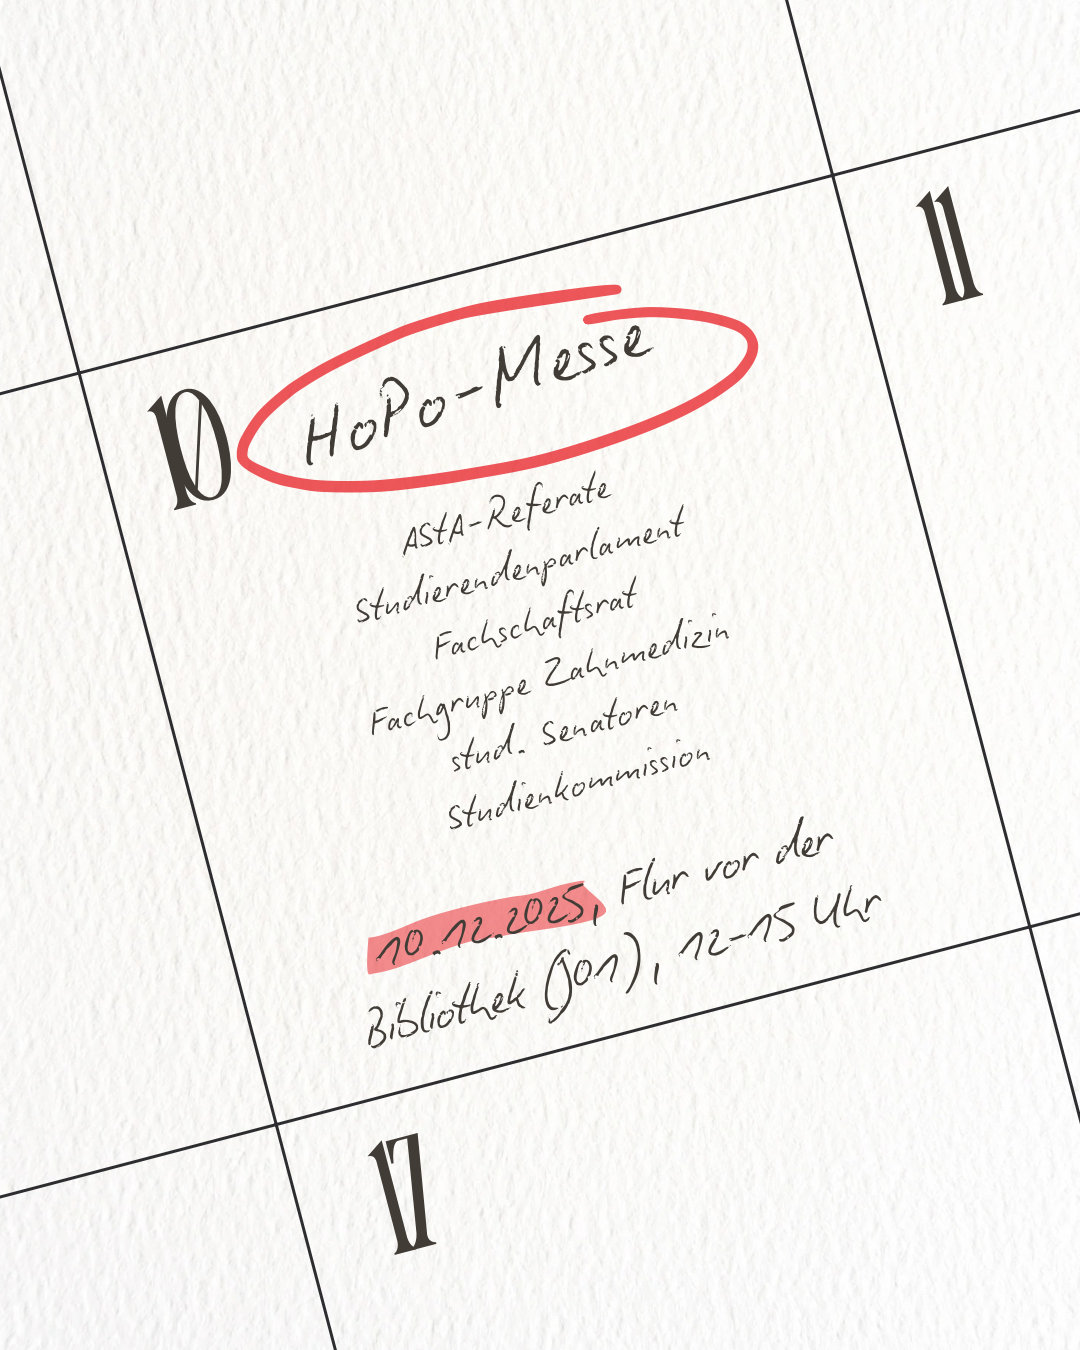 10
HoPo-Messe
11
AStA-Referate
Studierendenparlament
Fachschaftsrat
Fachgruppe Zahnmedizin
stud. Senatoren
Studienkommission
10.12.2025, Flur vor der
Bibliothek (J01), 12-15 Uhr
17